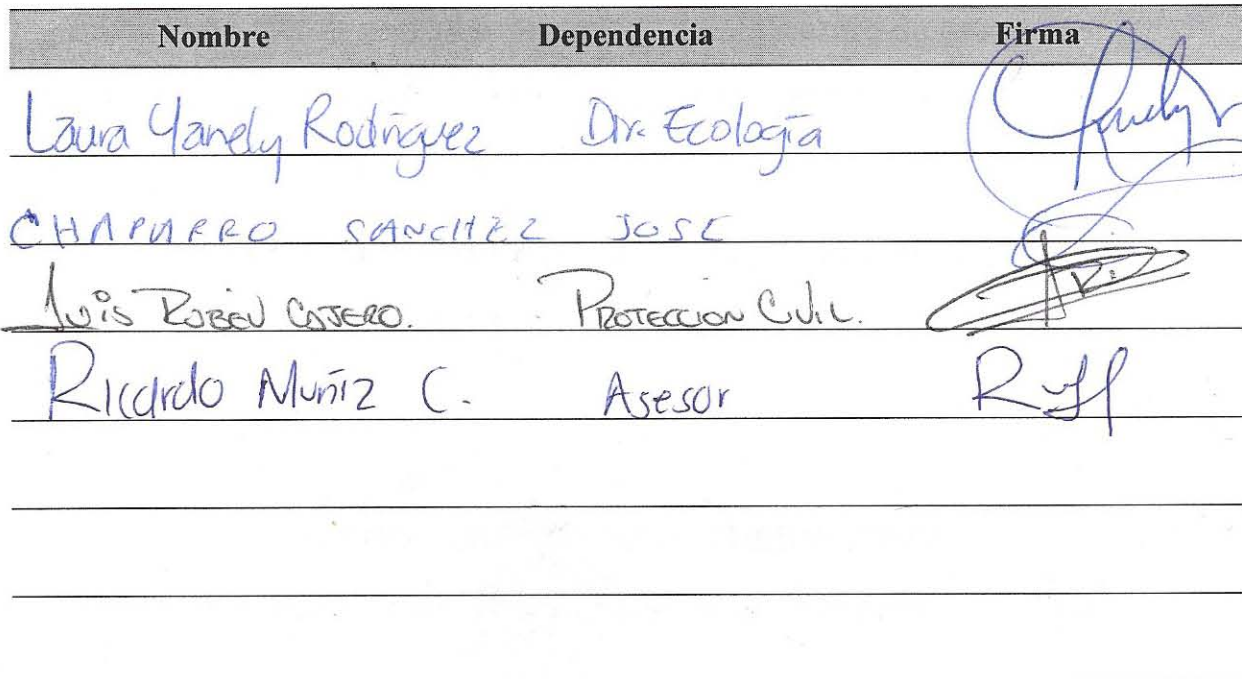 Nombre Dependencia Firma
Laura Yanely Rodríguez Dir. Ecología
CHAPARRO SANCHEZ JOSE
Luis RUBEN COJERO. PROTECCION CIVIL.
Ricardo Muñiz C. Asesor